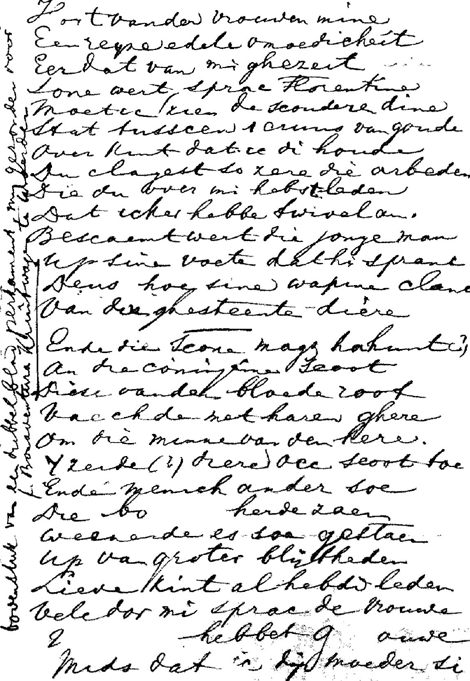 Tort vander vrouwen mine
Een reyne edele omoedicheit
Eer dat van mi ghezeit
Sone wert, sprac Florentine
Moetic zien de scoudere dine
Stat tusscen 1 cruus van goude
Over kint datic di houde
Du clagest so zere die arbeden
Die du over mi hebst leden
Dat icker hebbe twivel an.
Bescaemt wert die jonge man
Up sine voete dat hi spranc
Deus hoe sine wapine clanc
Van den ghesteente diere
Ende die scone magz hahunt (?)
An die coninginne scoot
Diese vanden bloede root
Vacchde met haren ghere
Om die minne van den here.
Yzerde (?) diere occ scoot toe
Ende menich ander soe
Die bo herde zaen
Weenende es soe gestaen
Up van groter blijtheden
Lieve kint al hebdi leden
Vele dor mi sprac de vrouwe
? hebbet g ouwe
Mids dat ic dijn moeder si
bovenstuk van een dubbelblad perkament mij gezonden voor